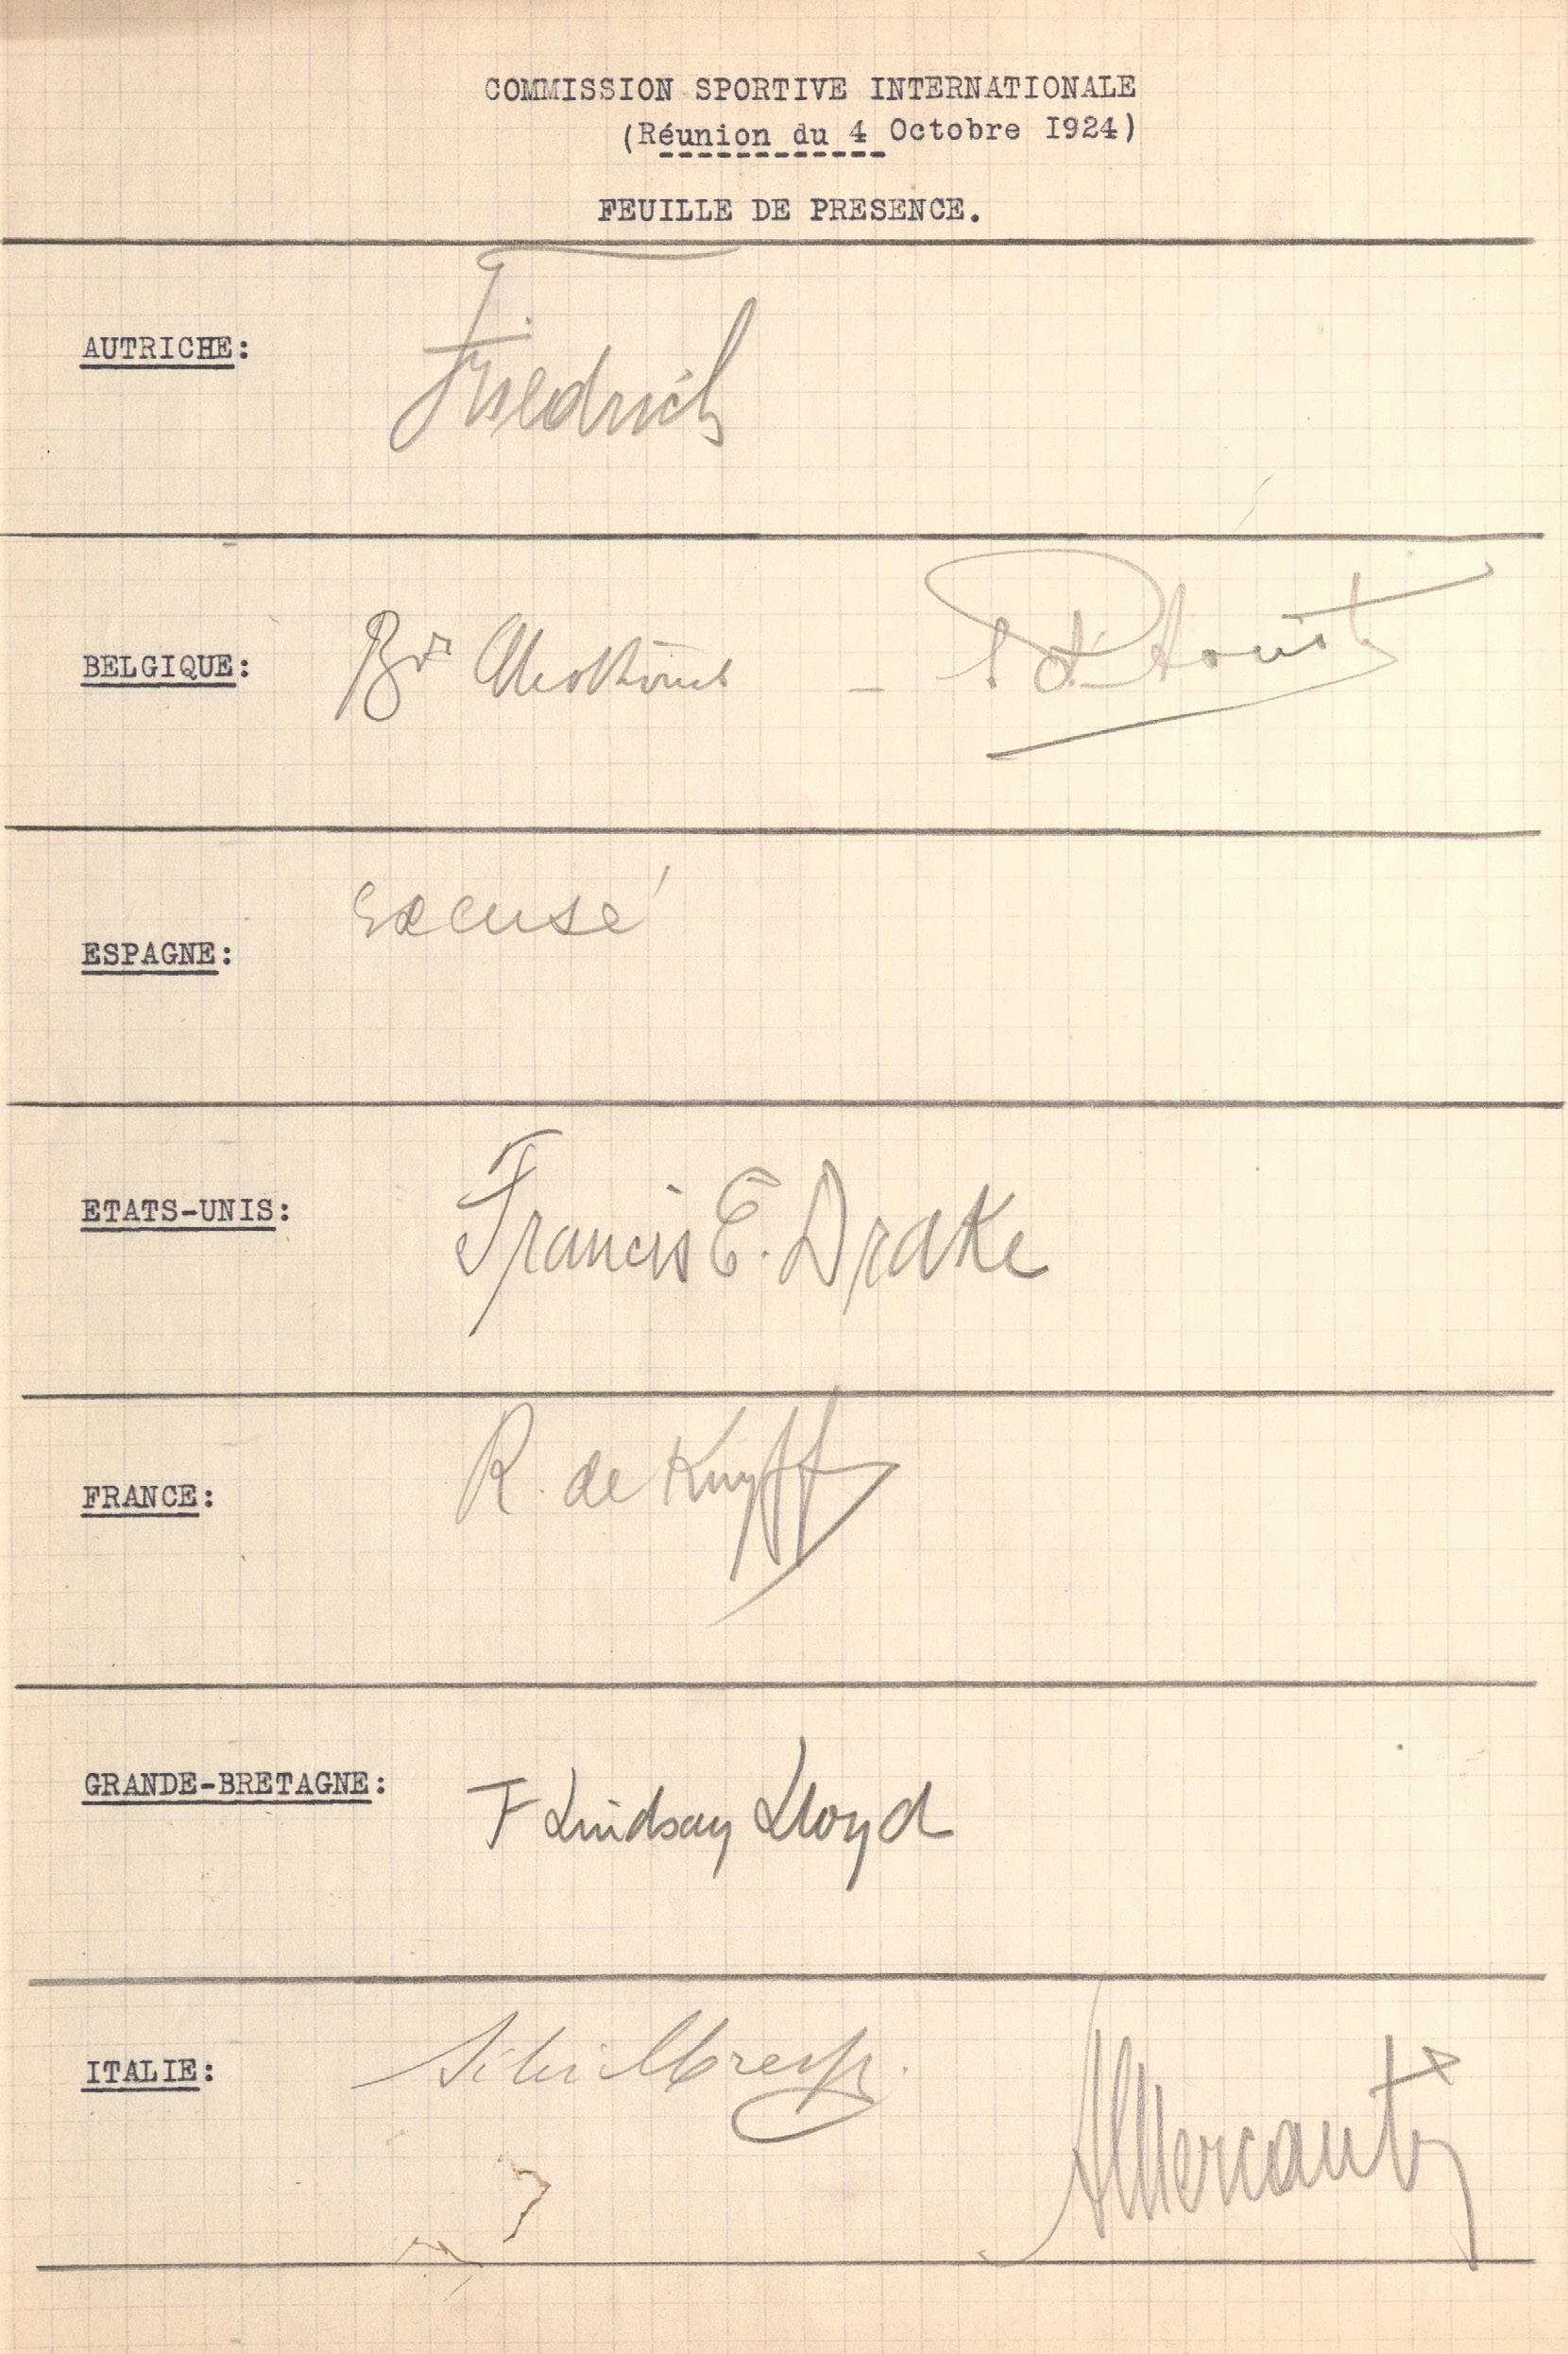 COMMISSION SPORTIVE INTERNATIONALE
(Réunion du 4 Octobre 1924)
FEUILLE DE PRESENCE.
AUTRICHE: Friedrich
BELGIQUE: Bon
ESPAGNE: Excusé
ETATS-UNIS: Francis E. Drake
FRANCE: R. de Knyff
GRANDE-BRETAGNE: F Lindsay Lloyd
ITALIE: Mercanti